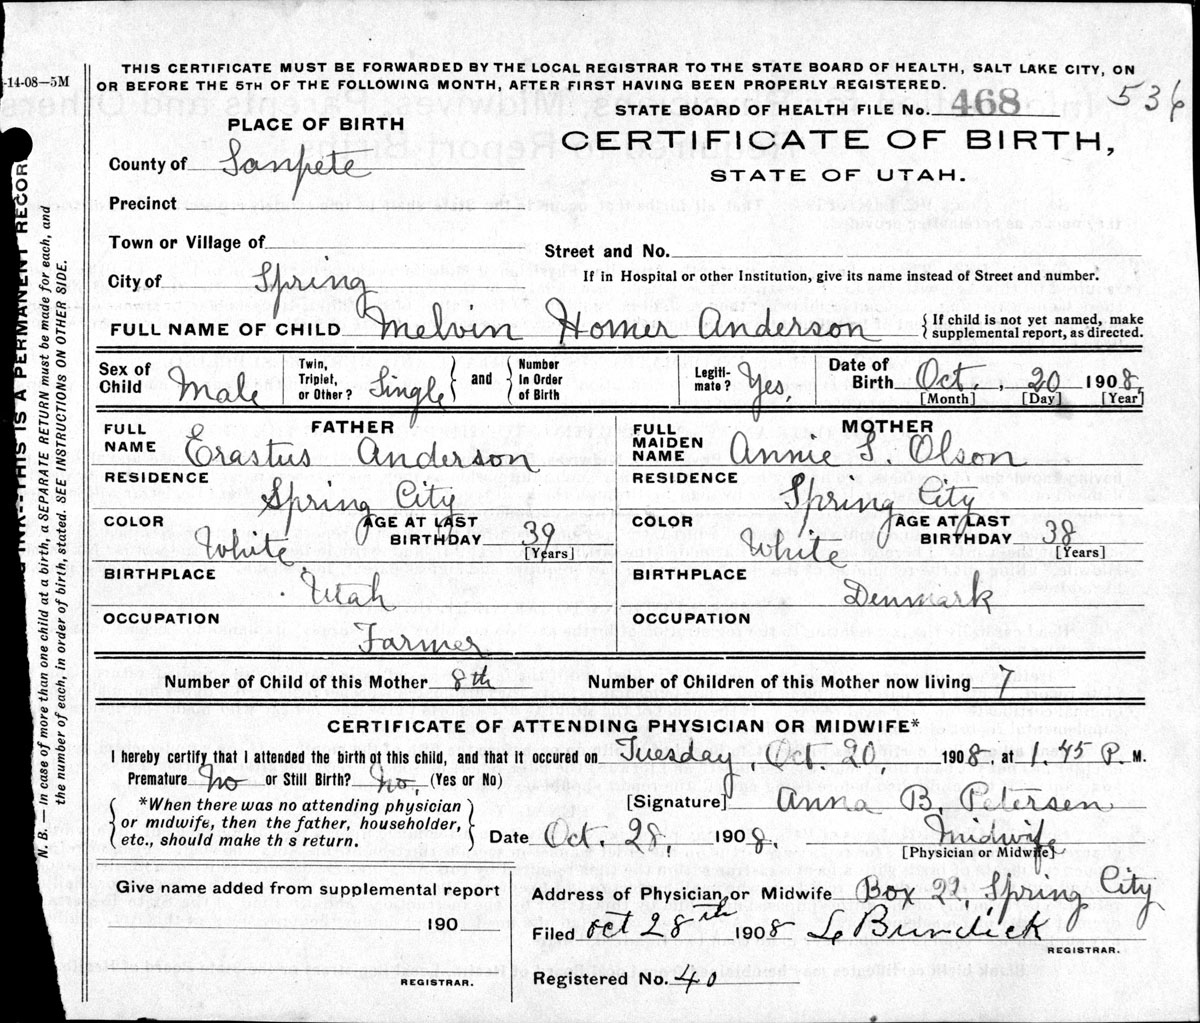 -14-08—5M
THIS CERTIFICATE MUST BE FORWARDED BY THE LOCAL REGISTRAR TO THE STATE BOARD OF HEALTH, SALT LAKE CITY, ON
OR BEFORE THE 5TH OF THE FOLLOWING MONTH, AFTER FIRST HAVING BEEN PROPERLY REGISTERED.
536
STATE BOARD OF HEALTH FILE No. 468
PLACE OF BIRTH
CERTIFICATE OF BIRTH,
STATE OF UTAH.
County of Sanpete
Precinct
Town or Village of
Street and No.
City of Spring
If in Hospital or other Institution, give its name instead of Street and number.
FULL NAME OF CHILD Melvin Homer Anderson { If child is not yet named, make
supplemental report, as directed.
Sex of Child Male
Twin, Triplet, or Other? Single } and { Number in Order of Birth
Legiti-mate? Yes,
Date of Birth Oct 20 1908,
[Month] [Day] [Year]
FATHER
FULL NAME Erastus Anderson
RESIDENCE Spring City
COLOR White
AGE AT LAST BIRTHDAY 39 [Years]
BIRTHPLACE Utah
OCCUPATION Farmer
MOTHER
FULL MAIDEN NAME Annie S. Olson
RESIDENCE Spring City
COLOR White
AGE AT LAST BIRTHDAY 38 [Years]
BIRTHPLACE Denmark
OCCUPATION
Number of Child of this Mother 8th Number of Children of this Mother now living 7
CERTIFICATE OF ATTENDING PHYSICIAN OR MIDWIFE*
I hereby certify that I attended the birth of this child, and that it occured on Tuesday, Oct. 20, 1908, at 1.45 P. M.
Premature No or Still Birth? No, (Yes or No)
{ *When there was no attending physician
or midwife, then the father, householder,
etc., should make th s return. }
[Signature] Anna B. Petersen
Date Oct. 28, 1908. Midwife
[Physician or Midwife]
Give name added from supplemental report
190
REGISTRAR.
Address of Physician or Midwife Box 2 Spring City
Filed Oct 28th 1908 Burdick
REGISTRAR.
Registered No. 40
INK--THIS IS A PERMANENT RECOR
N. B. — In case of more than one child at a birth, a SEPARATE RETURN must be made for each, and
the number of each, in order of birth, stated. SEE INSTRUCTIONS ON OTHER SIDE.